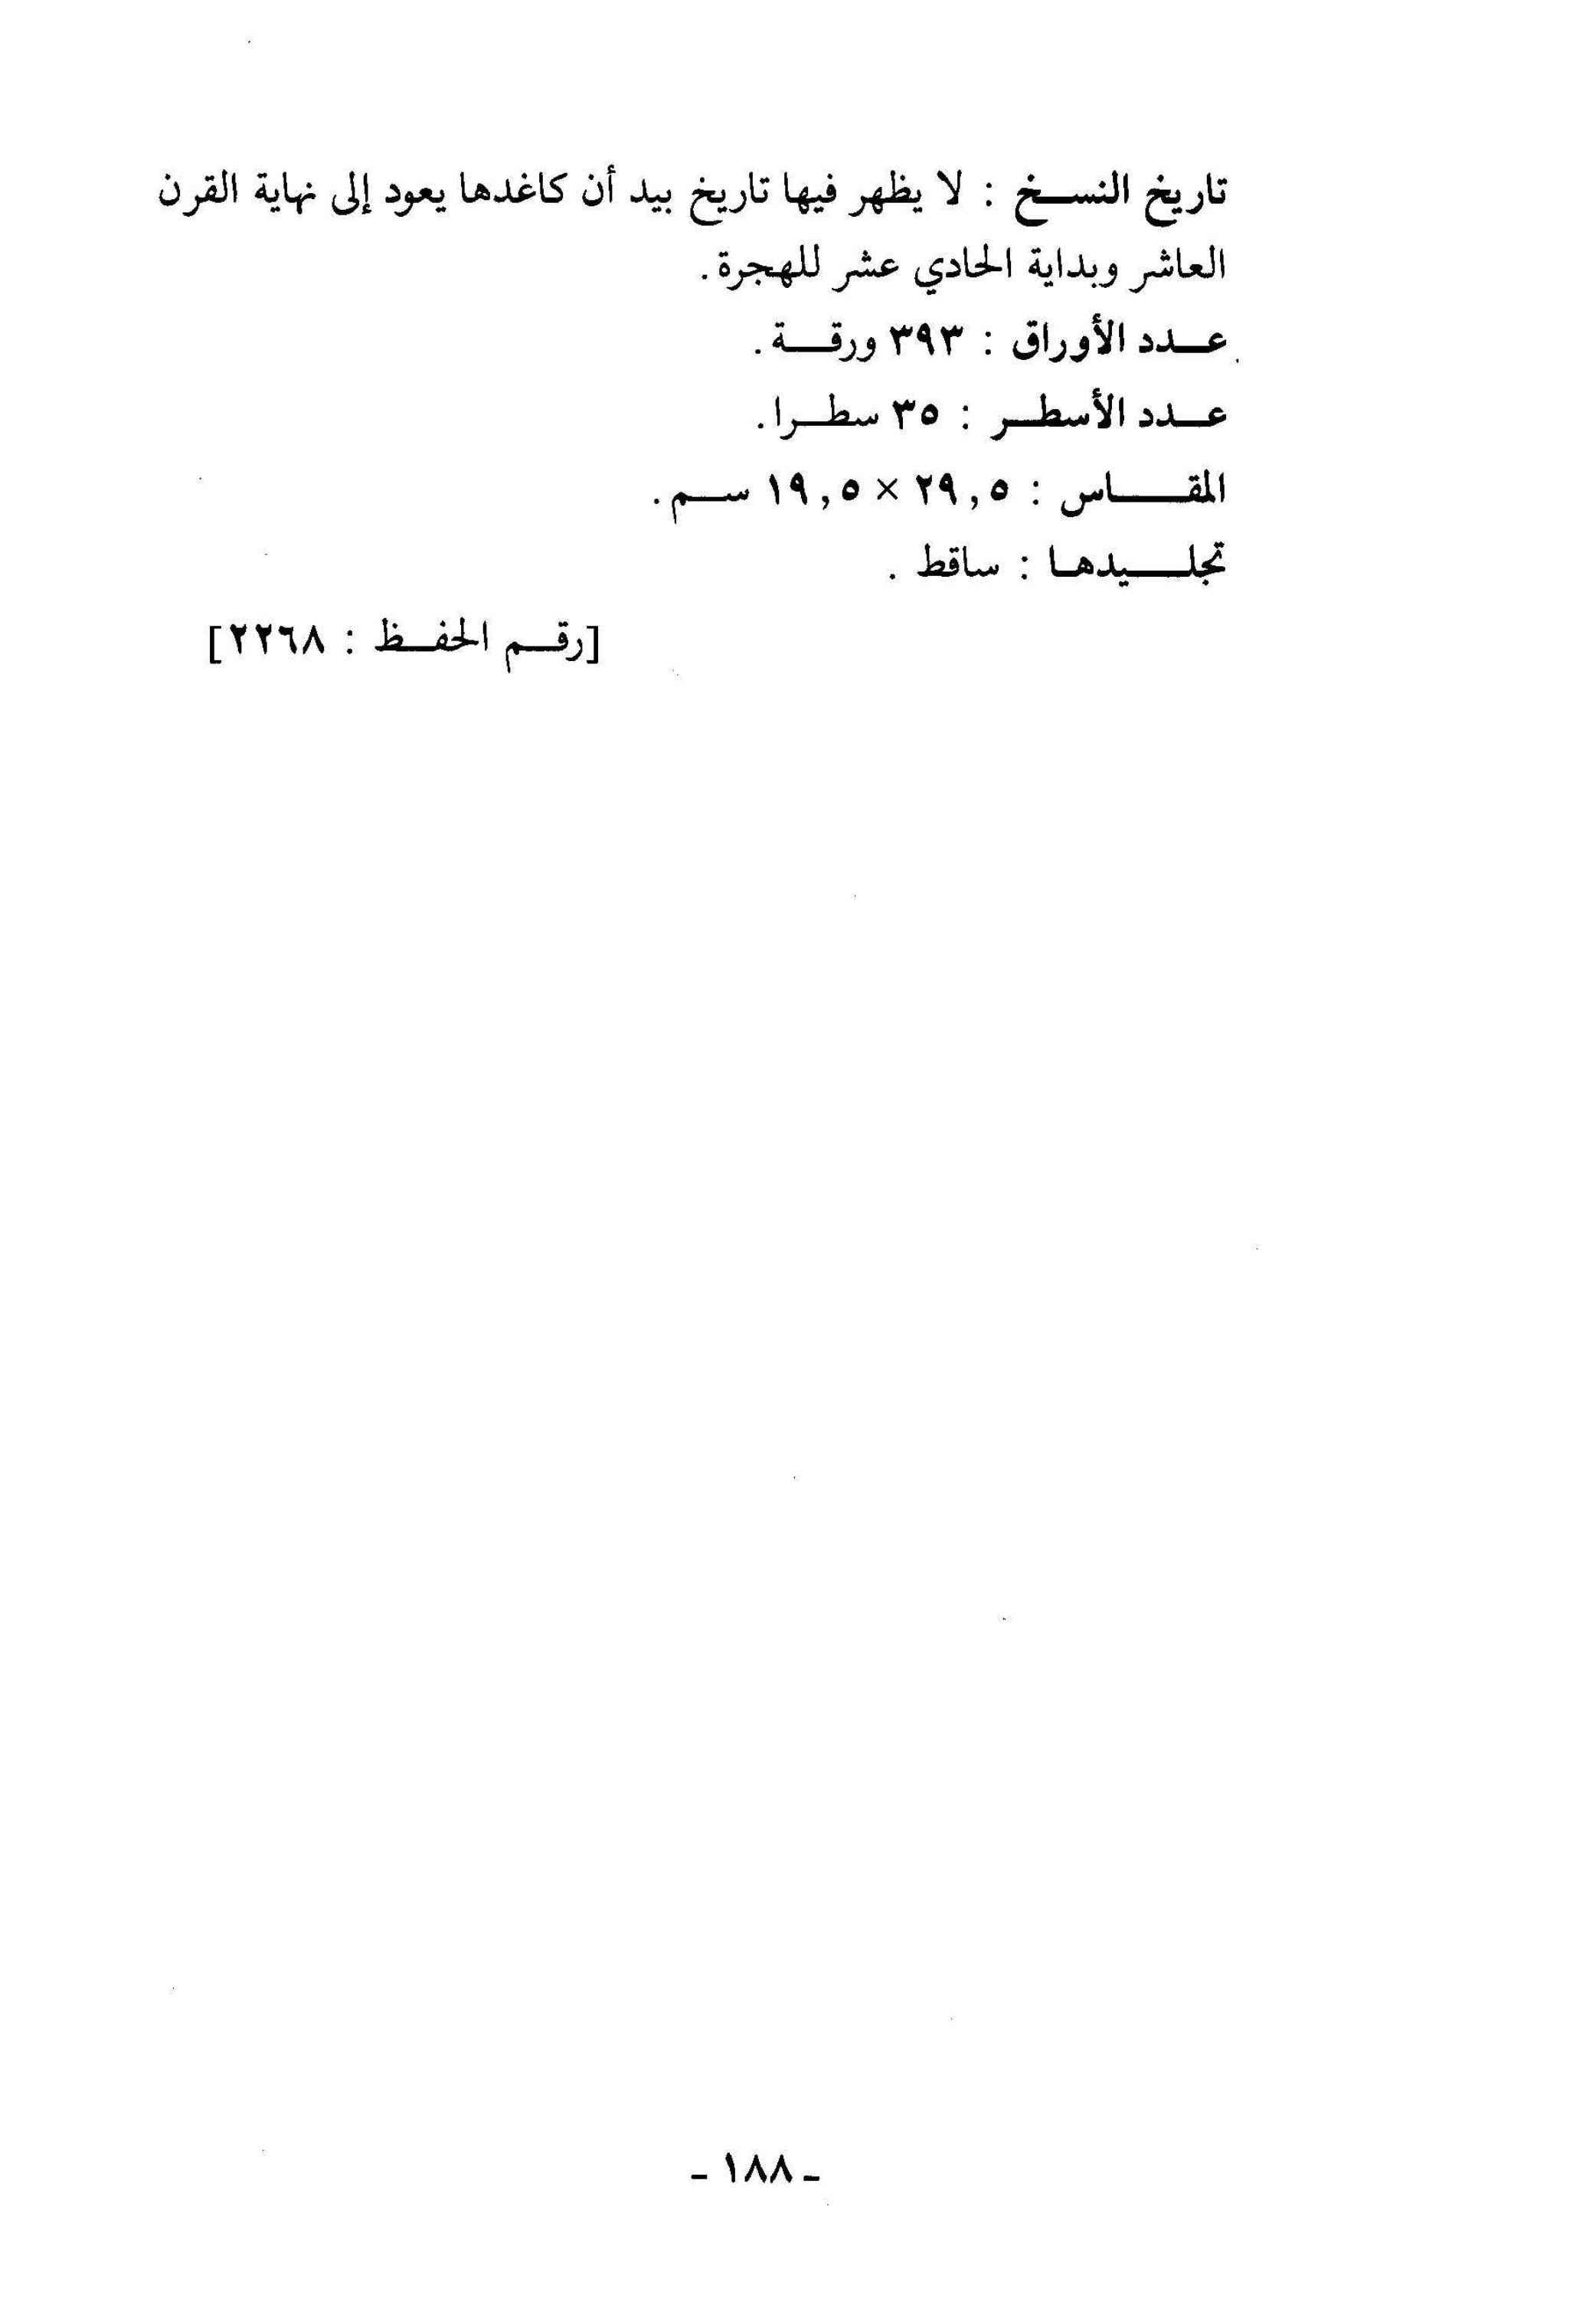 تاريخ النسخ : لا يظهر فيها تاريخ بيد أن كاغدها يعود إلى نهاية القرن
العاشر وبداية الحادي عشر للهجرة.
عدد الأوراق : ٣٩٣ ورقة.
عدد الأسطر : ٣٥ سطرا.
المقاس : ٢٩,٥ × ١٩,٥ سم.
تجليدها : ساقط .
[رقم الحفظ : ٢٢٦٨]
- ١٨٨ -